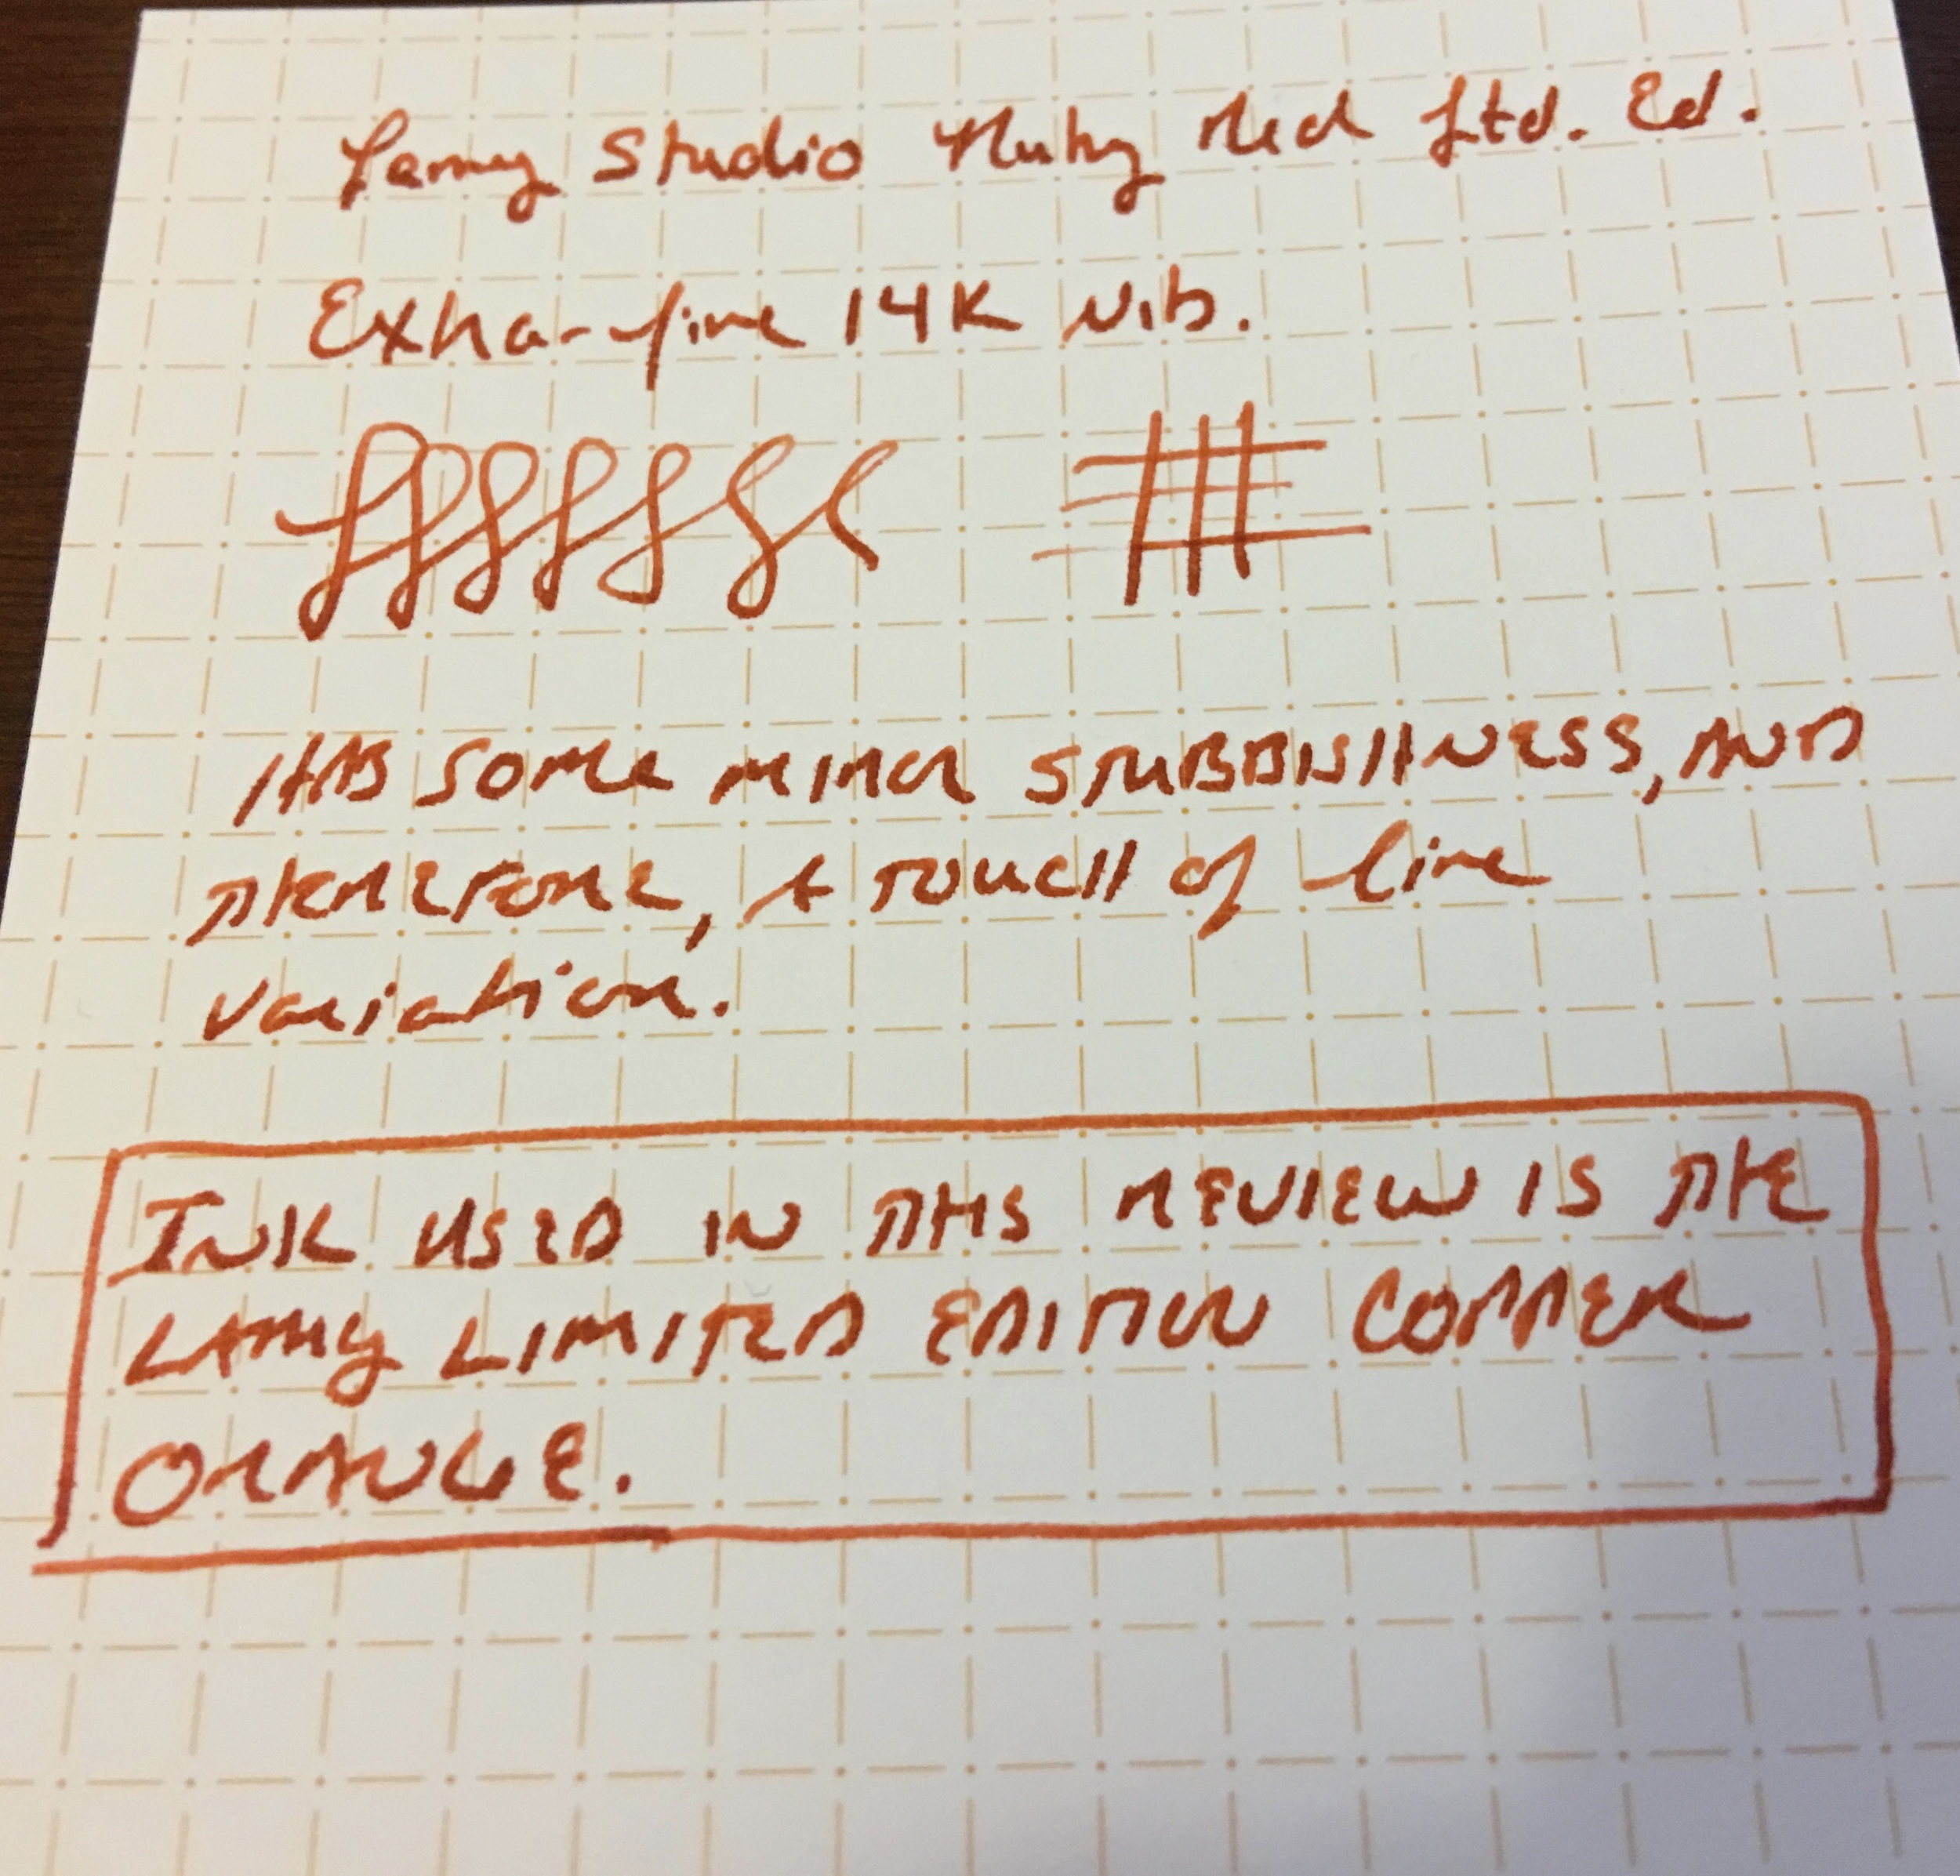 Lamy Studio Ruby Red Ltd. Ed.
Extra-fine 14K Nib.
HAS SOME MINOR STUBBISHNESS, AND
THEREFORE, A TOUCH of line
variation.
INK USED IN THIS REVIEW IS THE
LAMY LIMITED EDITION COPPER
ORANGE.